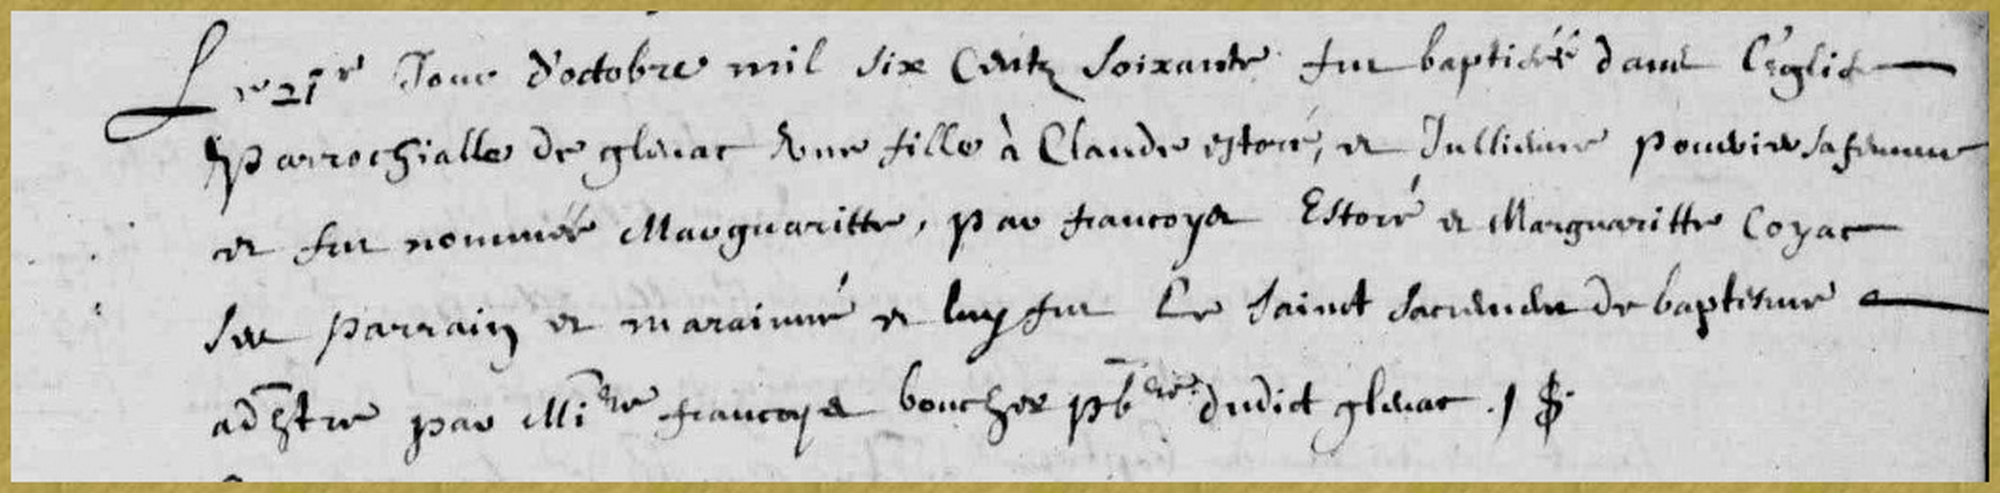 Le 21e Jour d'octobre mil six Centz soixante fut baptisée dans L'eglise
parrochialle de glenac une fille à Claude estoré, et Jullienne pouvier sa femme
et fut nommée Marguaritte, par francoys Estoré et Marguaritte Coyac
ses parrain et marainne et luy fut Le Saint Sacrement de baptesme
adstre par Missre francoys boucher pbre dudict glenac